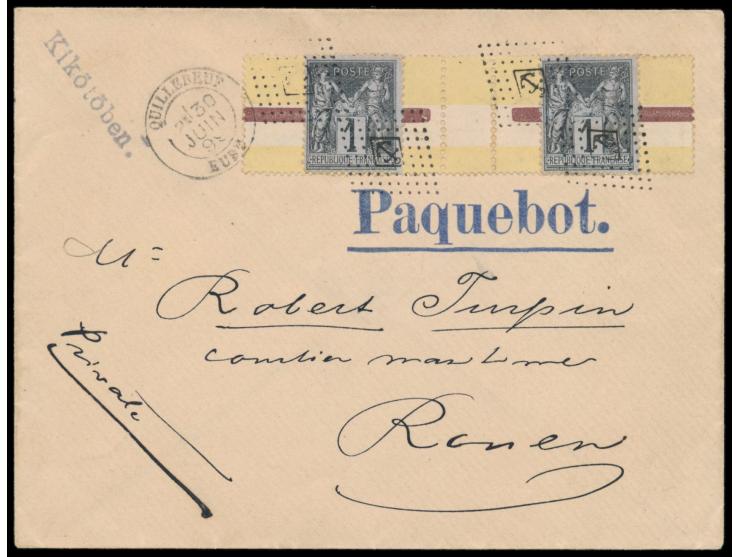 Kikötöben.
QUILLEBEUF
2E 30
JUIN
98
EURE
POSTE
1
REPUBLIQUE FRANCAISE
POSTE
1
REPUBLIQUE FRANCAISE
Paquebot.
Mr
Robert Turpin
courtier maritime
Rouen
Privale